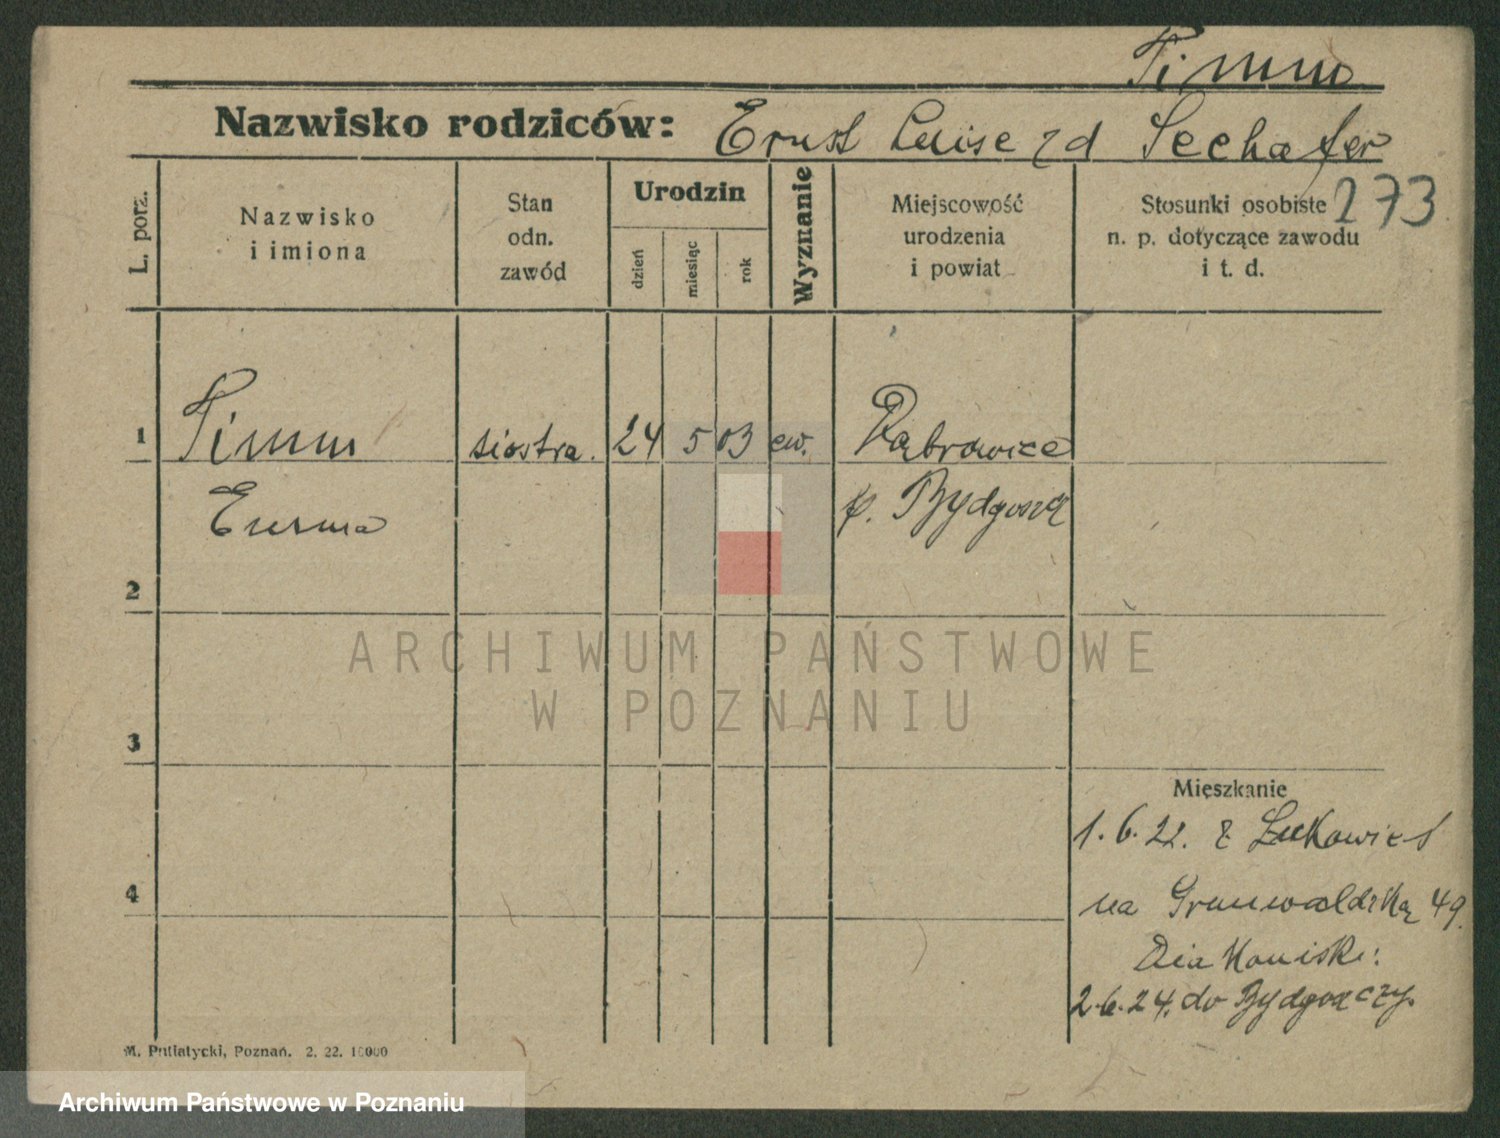 Timm
Nazwisko rodziców: Ernst Luise zd Seehafer
L. porz.
Nazwisko
i imiona
Stan
odn.
zawód
Urodzin
dzień
miesiąc
rok
Wyznanie
Miejscowość
urodzenia
i powiat
Stosunki osobiste 273
n. p. dotyczące zawodu
i t. d.
1 Timm siostra. 24 5 03 ew. Dąbrowice
p. Bydgoszcz
2
3
Mieszkanie
1. 6. 22. z
4
na Grunwaldzką 49.
Diakonisk:
2.6.24. do Bydgoszczy.
M. Putiatycki, Poznań. 2. 22. 10000
ARCHIWUM PAŃSTWOWE
W POZNANIU
Archiwum Państwowe w Poznaniu